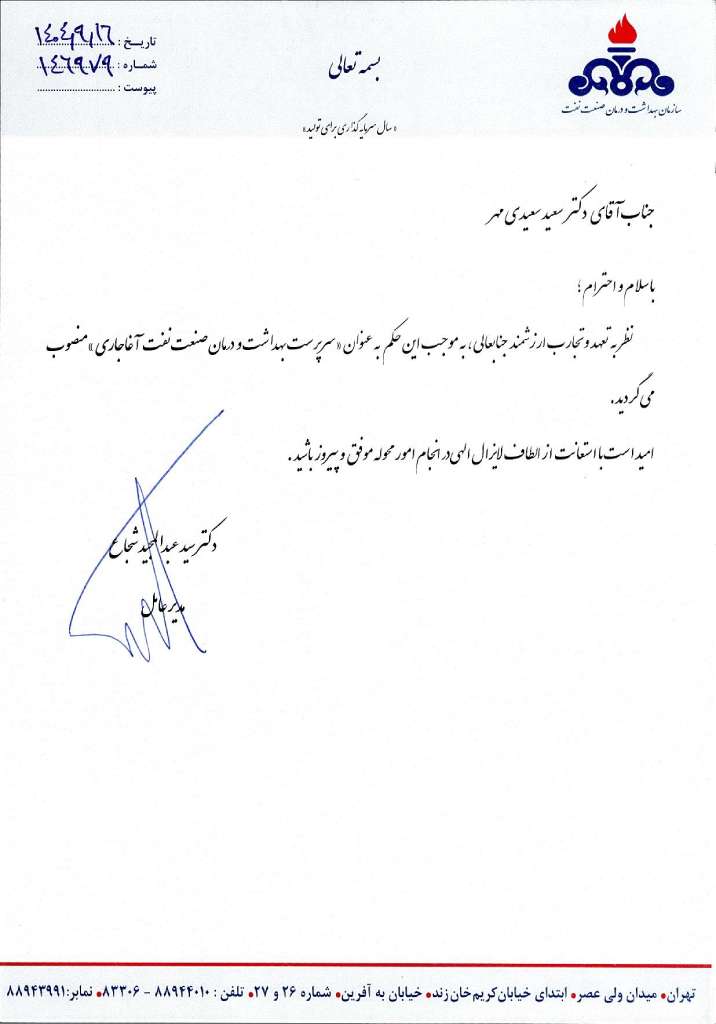 بسمه تعالی
تاریخ : ۱۴۰۴/۹/۱۶
شماره : ۱۴۶۹۷۹
پیوست :
سازمان بهداشت و درمان صنعت نفت
«سال سرمایه گذاری برای تولید»
جناب آقای دکتر سعید سعیدی مهر
باسلام و احترام ؛
نظر به تعهد و تجارب ارزشمند جنابعالی، به موجب این حکم به عنوان «سرپرست بهداشت و درمان صنعت نفت آغاجاری» منصوب
می گردید.
امید است با استعانت از الطاف لایزال الهی در انجام امور محوله موفق و پیروز باشید.
دکتر سید عبدالمجید شجاع
مدیرعامل
تهران• میدان ولی عصر• ابتدای خیابان کریم خان زند• خیابان به آفرین• شماره ۲۶ و ۲۷• تلفن : ۸۸۹۴۴۰۱۰ - ۸۳۳۰۶• نمابر:۸۸۹۴۳۹۹۱